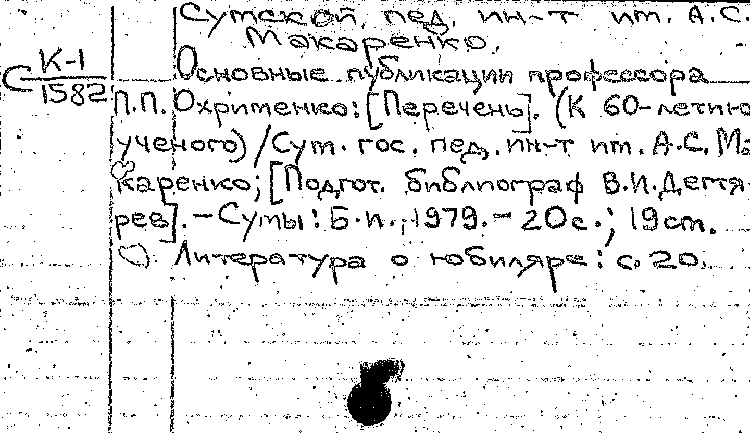 Сумской. пед. ин-т им. А.С.
Макаренко.
С К-1
1582
Основные публикации профессора
П.П. Охрименко: [Перечень]. (К 60-летию
ученого) / Сум. гос. пед. ин-т им. А.С. Ма-
каренко; [Подгот. библиограф В.И. Дегтя-
рев]. – Сумы: Б.и., 1979. – 20 с.; 19 см.
Литература о юбиляре: с. 20.